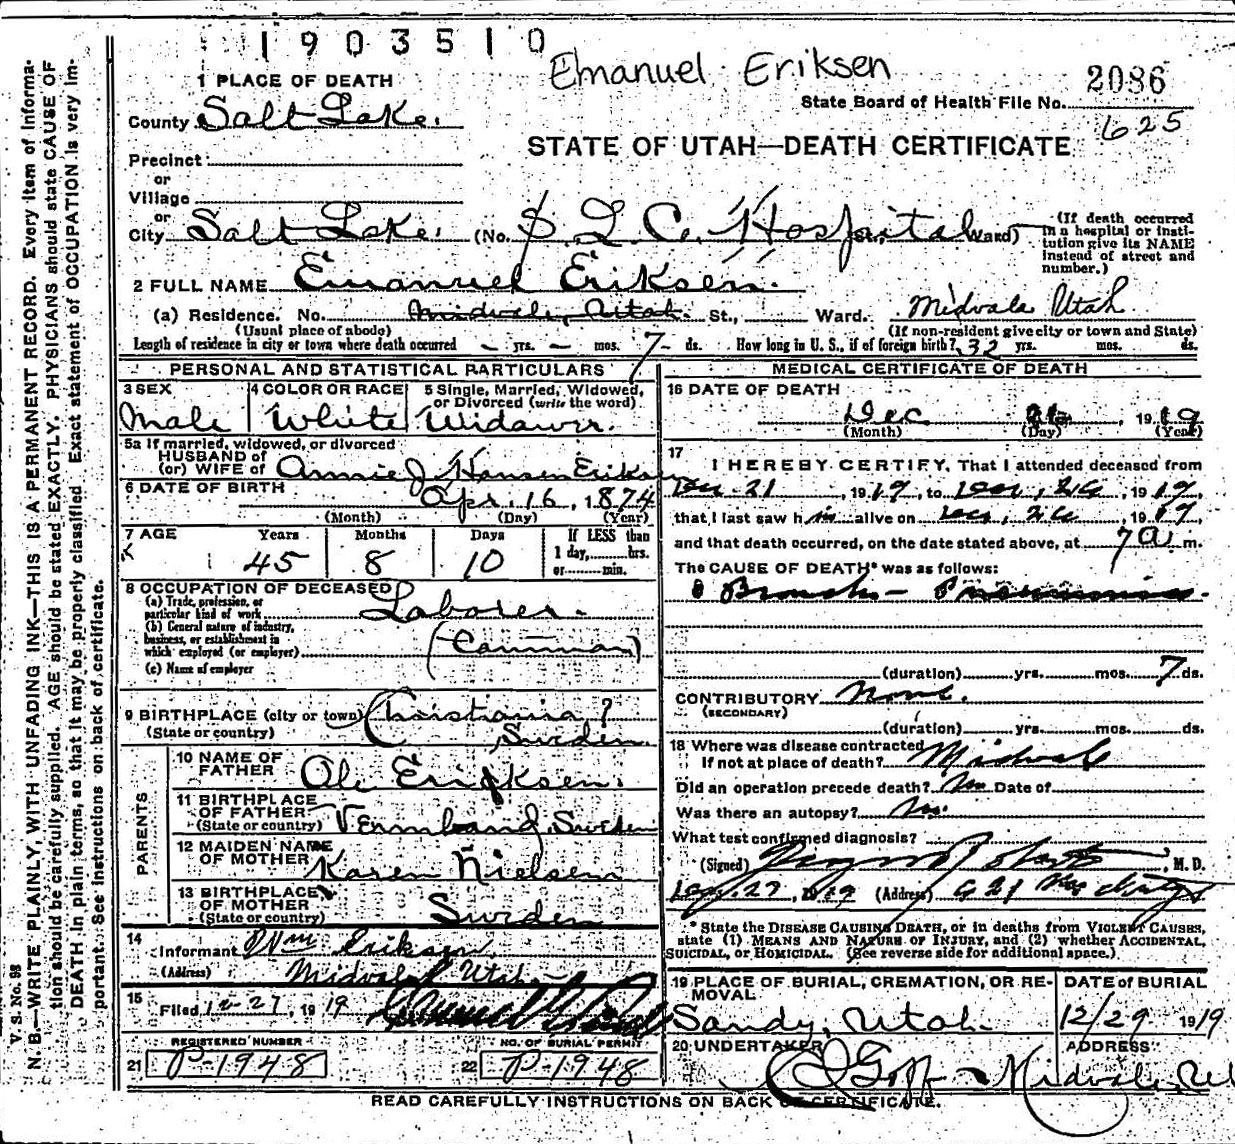 1903510
Emanuel Eriksen
2086
State Board of Health File No.
625
1 PLACE OF DEATH
County Salt Lake.
STATE OF UTAH—DEATH CERTIFICATE
Precinct
or
Village
or
City Salt Lake. (No. S. L. Co. Hospital St., Ward)
(If death occurred in a hospital or institution give its NAME instead of street and number.)
2 FULL NAME Emanuel Eriksen.
(a) Residence. No. Midvale, Utah. St., Ward. Midvale Utah
(Usual place of abode) (If non-resident give city or town and State)
Length of residence in city or town where death occurred – yrs. – mos. 7 – ds. How long in U. S., if of foreign birth? 32 yrs. mos. ds.
PERSONAL AND STATISTICAL PARTICULARS
3 SEX
Male
4 COLOR OR RACE
White
5 Single, Married, Widowed, or Divorced (write the word)
Widower.
5a If married, widowed, or divorced
HUSBAND of
(or) WIFE of Annie J Hansen Eriksen
6 DATE OF BIRTH
Apr. 16, 1874
(Month) (Day) (Year)
7 AGE Years Months Days If LESS than 1 day, hrs. or min.
45 8 10
8 OCCUPATION OF DECEASED
(a) Trade, profession, or particular kind of work Laborer.
(b) General nature of industry, business, or establishment in which employed (or employer) (Common)
(c) Name of employer
9 BIRTHPLACE (city or town) Christiania ?
(State or country) Sweden
PARENTS
10 NAME OF FATHER Ole Eriksen.
11 BIRTHPLACE OF FATHER (State or country) Vermland, Sweden
12 MAIDEN NAME OF MOTHER Karen Nielsen
13 BIRTHPLACE OF MOTHER (State or country) Sweden
14 Informant Wm Eriksen.
(Address) Midvale Utah.
15 Filed 12-27, 1919
REGISTERED NUMBER
21 P-1948
NO. OF BURIAL PERMIT
22 P-1948
MEDICAL CERTIFICATE OF DEATH
16 DATE OF DEATH
Dec 26, 1919
(Month) (Day) (Year)
17 I HEREBY CERTIFY, That I attended deceased from
Dec. 21, 1919, to Dec, 26, 1919,
that I last saw him alive on Dec, 26, 1919,
and that death occurred, on the date stated above, at 7 a m.
The CAUSE OF DEATH* was as follows:
Broncho- Pneumonia.
(duration) yrs. mos. 7 ds.
CONTRIBUTORY None.
(SECONDARY)
(duration) yrs. mos. ds.
18 Where was disease contracted
If not at place of death? Midvale
Did an operation precede death? No Date of
Was there an autopsy? No.
What test confirmed diagnosis?
(Signed) , M. D.
Dec. 27, 1919 (Address) 621
* State the DISEASE CAUSING DEATH, or in deaths from VIOLENT CAUSES, state (1) MEANS AND NATURE OF INJURY, and (2) whether ACCIDENTAL, SUICIDAL, or HOMICIDAL. (See reverse side for additional space.)
19 PLACE OF BURIAL, CREMATION, OR REMOVAL
Sandy, Utah.
DATE OF BURIAL
12/29 1919
20 UNDERTAKER
Goff
ADDRESS
Midvale, Ut
READ CAREFULLY INSTRUCTIONS ON BACK OF CERTIFICATE.
V. S. No. 98
N. B.—WRITE PLAINLY, WITH UNFADING INK—THIS IS A PERMANENT RECORD. Every item of information should be carefully supplied. AGE should be stated EXACTLY. PHYSICIANS should state CAUSE OF DEATH in plain terms, so that it may be properly classified. Exact statement of OCCUPATION is very important. See instructions on back of certificate.